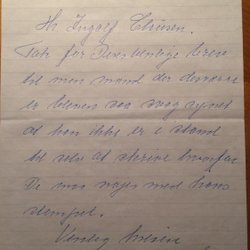 Hr. Ingolf Clausen.
Tak for Deres venlige brev
til min mand der desværre
er bleven saa svag synet
at han ikke er i stand
til selv at skrive hvorfor
De maa nøjes med hans
stempel.
Venlig hilsen